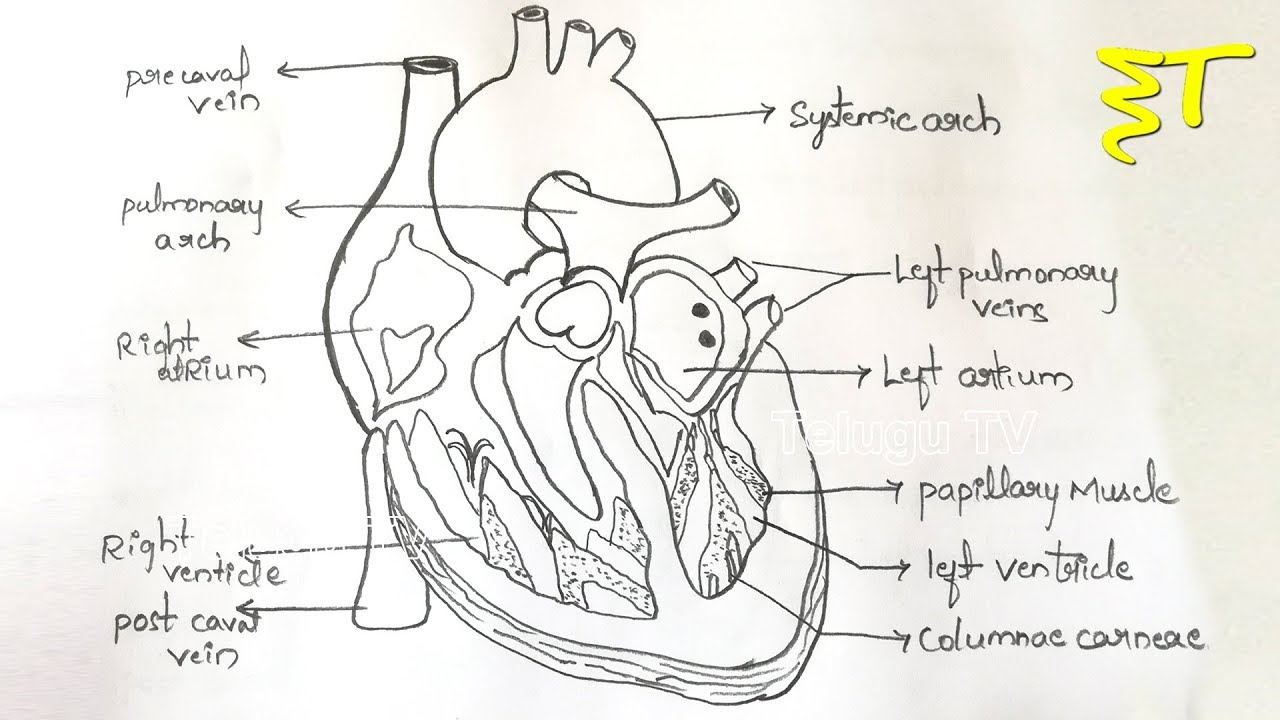 precaval
vein
pulmonary
arch
Right
atRium
Right
venticle
post caval
vein
Systemic arch
Left pulmonary
veins
Left artium
Telugu TV
papillary Muscle
left ventricle
Columnae carneae